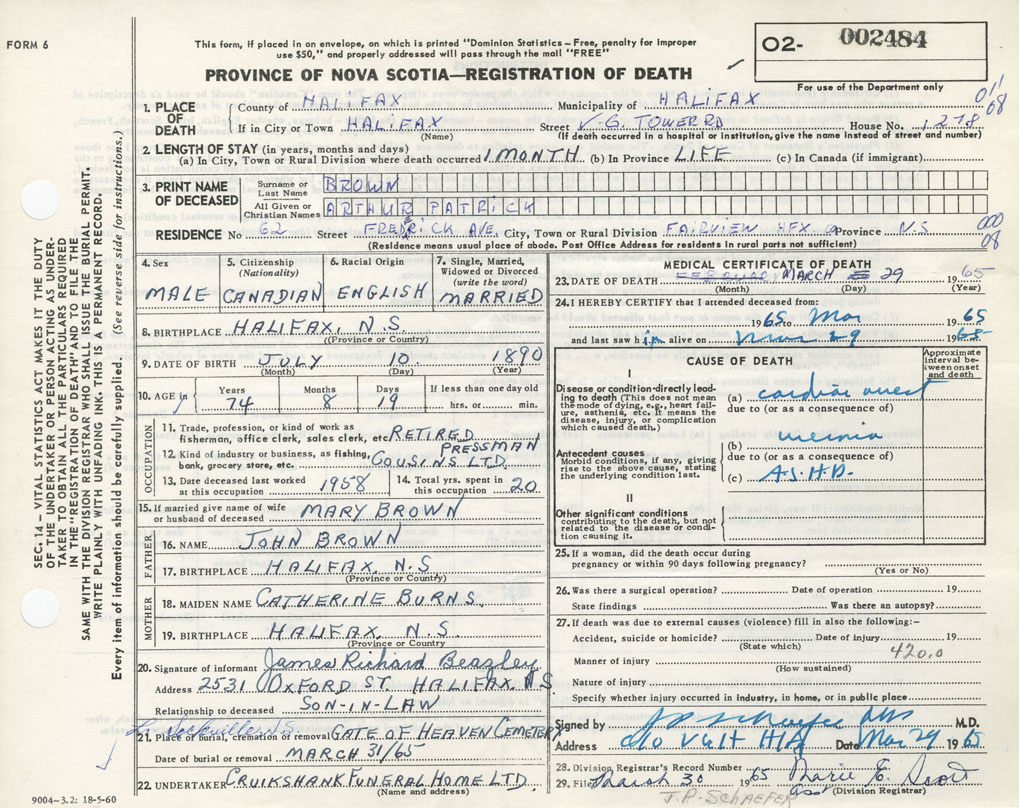 FORM 6
This form, if placed in an envelope, on which is printed "Dominion Statistics – Free, penalty for improper
use $50," and properly addressed will pass through the mail "FREE"
PROVINCE OF NOVA SCOTIA—REGISTRATION OF DEATH
02- 002484
For use of the Department only
011
08
1. PLACE OF DEATH
County of HALIFAX Municipality of HALIFAX
If in City or Town HALIFAX Street V.G. TOWER RD House No. 1278
(Name) (If death occurred in a hospital or institution, give the name instead of street and number)
2. LENGTH OF STAY (in years, months and days)
(a) In City, Town or Rural Division where death occurred 1 MONTH (b) In Province LIFE (c) In Canada (if immigrant)
3. PRINT NAME OF DECEASED
Surname or Last Name BROWN
All Given or Christian Names ARTHUR PATRICK
RESIDENCE No 62 Street FREDRICK AVE. City, Town or Rural Division FAIRVIEW HFX Co Province N.S
(Residence means usual place of abode. Post Office Address for residents in rural parts not sufficient)
000
08
4. Sex MALE
5. Citizenship (Nationality) CANADIAN
6. Racial Origin ENGLISH
7. Single, Married, Widowed or Divorced (write the word) MARRIED
8. BIRTHPLACE HALIFAX, N.S.
(Province or Country)
9. DATE OF BIRTH JULY 10 1890
(Month) (Day) (Year)
10. AGE in Years 74 Months 8 Days 19 If less than one day old hrs. or min.
OCCUPATION
11. Trade, profession, or kind of work as
fisherman, office clerk, sales clerk, etc. RETIRED PRESSMAN
12. Kind of industry or business, as fishing,
bank, grocery store, etc. COUSINS LTD.
13. Date deceased last worked at this occupation 1958
14. Total yrs. spent in this occupation 20
15. If married give name of wife or husband of deceased MARY BROWN
FATHER
16. NAME JOHN BROWN
17. BIRTHPLACE HALIFAX, N.S
(Province or Country)
MOTHER
18. MAIDEN NAME CATHERINE BURNS.
19. BIRTHPLACE HALIFAX, N.S.
(Province or Country)
20. Signature of informant James Richard Beazley
Address 2531 OXFORD ST. HALIFAX, N.S
Relationship to deceased SON-IN-LAW
21. Place of burial, cremation or removal GATE OF HEAVEN CEMETERY
Date of burial or removal MARCH 31/65
22. UNDERTAKER CRUIKSHANK FUNERAL HOME LTD.
(Name and address)
9004-3.2: 18-5-60
MEDICAL CERTIFICATE OF DEATH
23. DATE OF DEATH MARCH 29 1965
(Month) (Day) (Year)
24. I HEREBY CERTIFY that I attended deceased from:
1965 to Mar 1965
and last saw him alive on Mar 29 1965
CAUSE OF DEATH
Approximate interval between onset and death
I
Disease or condition directly leading to death (This does not mean the mode of dying, e.g., heart failure, asthenia, etc. It means the disease, injury, or complication which caused death.)
(a) cardiac arrest
due to (or as a consequence of)
Antecedent causes
Morbid conditions, if any, giving rise to the above cause, stating the underlying condition last.
(b) uremia
due to (or as a consequence of)
(c) A.S.H.D.
II
Other significant conditions
contributing to the death, but not related to the disease or condition causing it.
25. If a woman, did the death occur during
pregnancy or within 90 days following pregnancy?
(Yes or No)
26. Was there a surgical operation? Date of operation 19
State findings Was there an autopsy?
27. If death was due to external causes (violence) fill in also the following:–
Accident, suicide or homicide? Date of injury 19
(State which)
420.0
Manner of injury
(How sustained)
Nature of injury
Specify whether injury occurred in industry, in home, or in public place
Signed by M.D.
Address c/o VGH Hfx Date Mar 29 1965
28. Division Registrar's Record Number
29. Filed March 30 1965 Marie E. Scott
(Division Registrar)
J.P. SCHAEFER
SEC. 14 – VITAL STATISTICS ACT MAKES IT THE DUTY
OF THE UNDERTAKER OR PERSON ACTING AS UNDERTAKER TO OBTAIN ALL THE PARTICULARS REQUIRED
IN THE "REGISTRATION OF DEATH" AND TO FILE THE
SAME WITH THE DIVISION REGISTRAR WHO SHALL ISSUE THE BURIAL PERMIT.
WRITE PLAINLY WITH UNFADING INK. THIS IS A PERMANENT RECORD.
Every item of information should be carefully supplied. (See reverse side for instructions.)